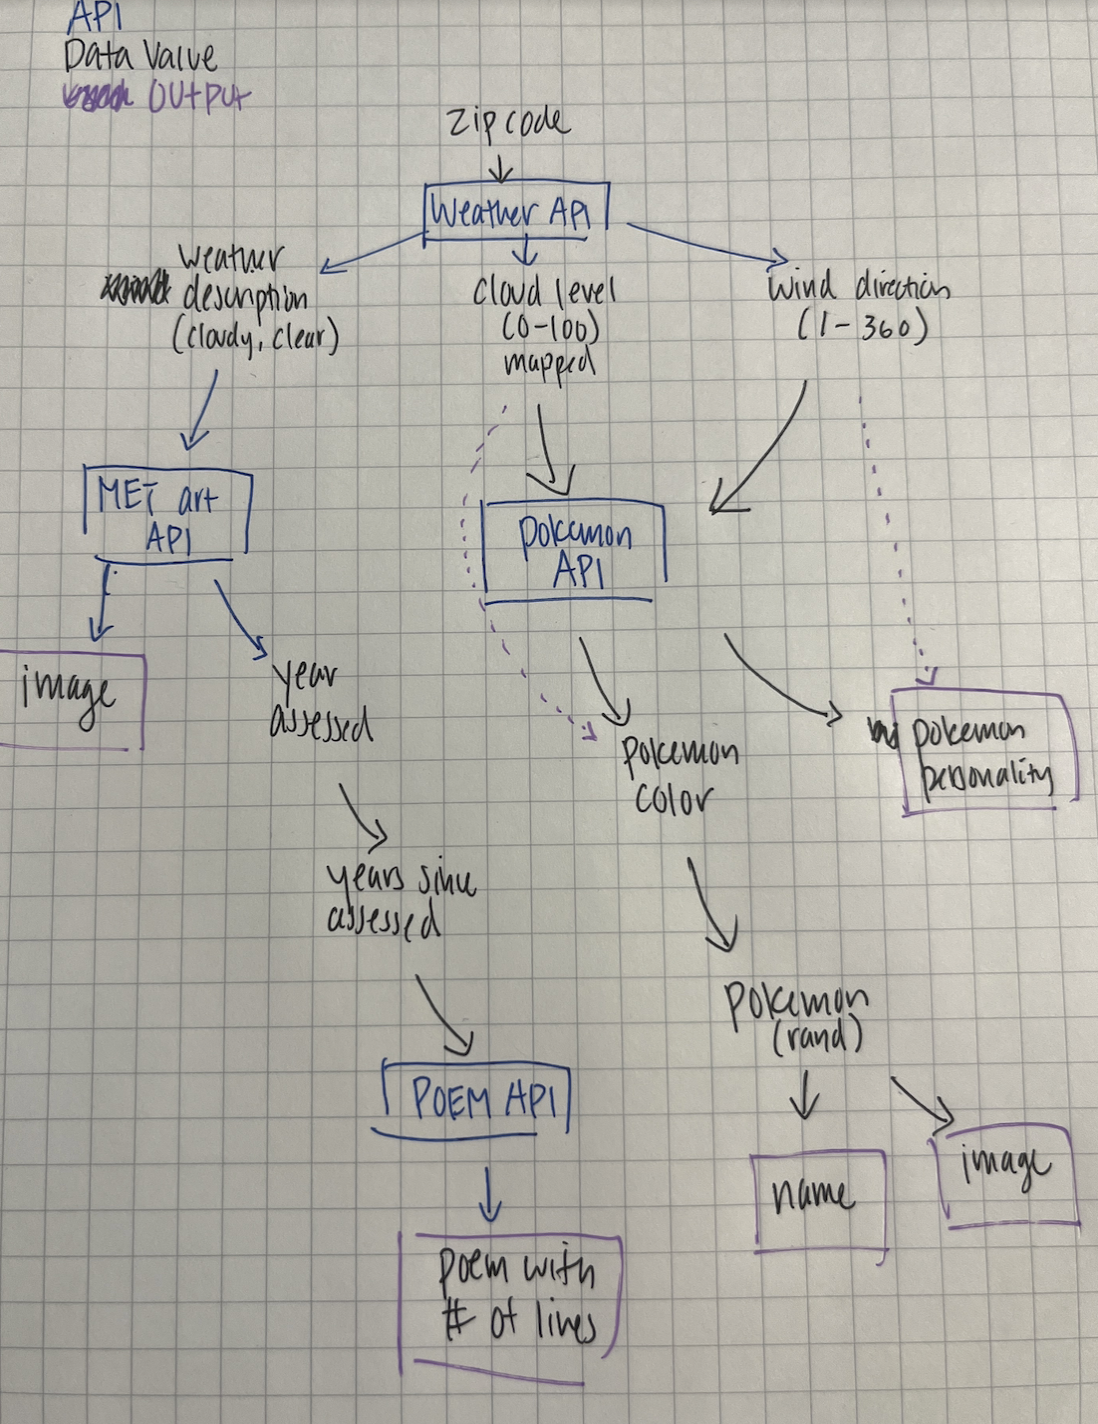 API
Data Value
OUtPUt
Zip code
Weather API
weather
description
(cloudy, clear)
cloud level
(0-100)
mapped
Wind direction
(1-360)
MET art
API
pokemon
API
image
year
assessed
pokemon
color
pokemon
personality
years since
assessed
Pokemon
(rand)
POEM API
name
image
poem with
# of lines